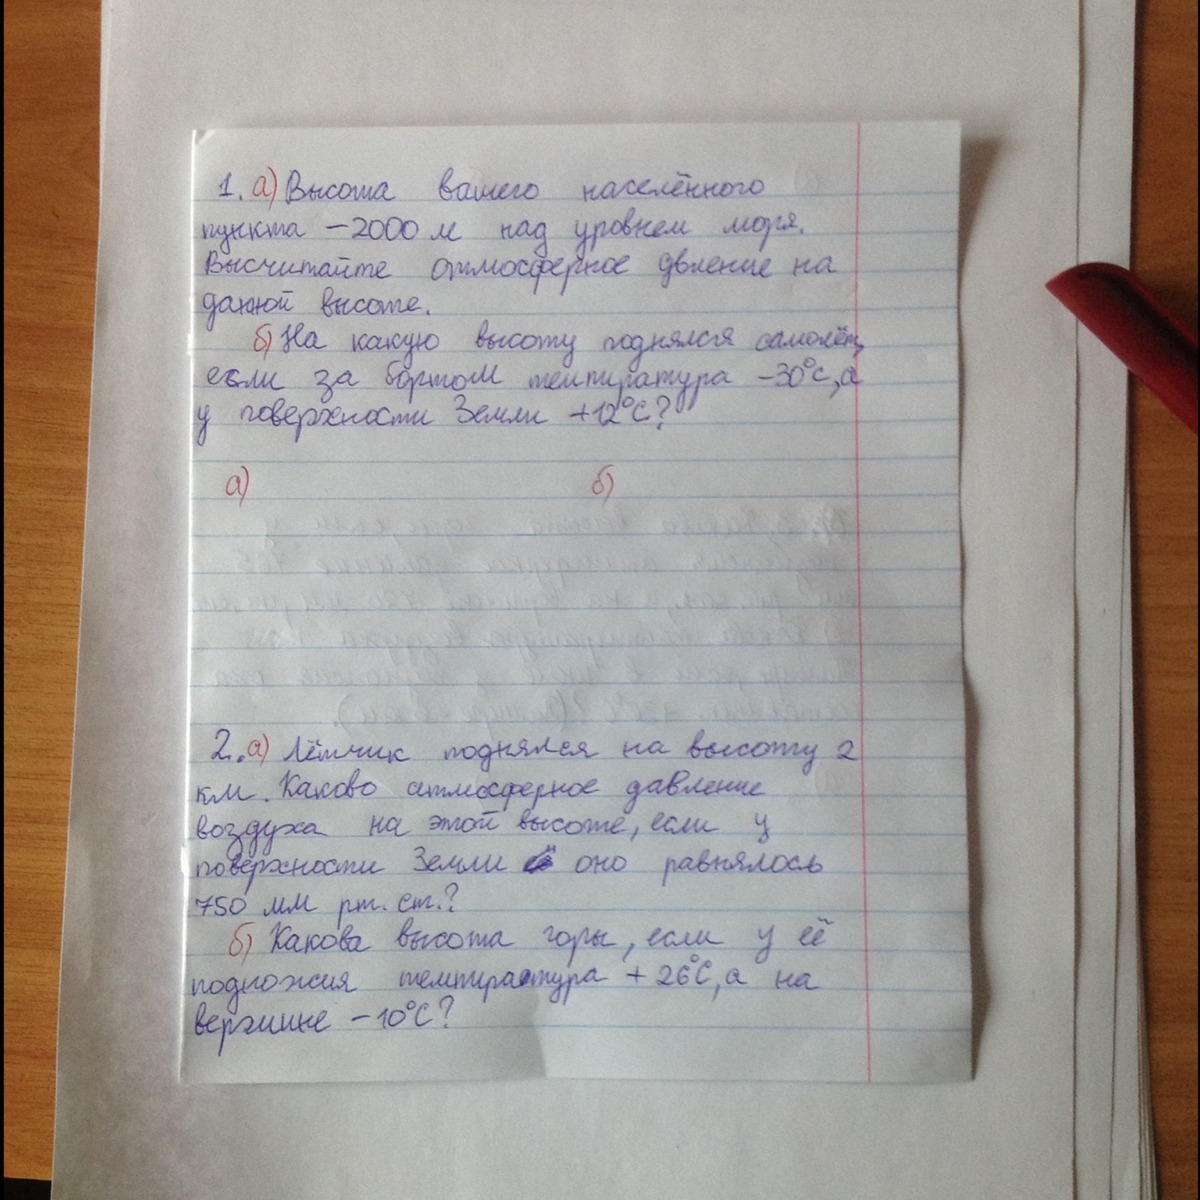 1. а) Высота вашего населённого
пункта – 2000 м над уровнем моря.
Высчитайте атмосферное двление на
данной высоте.
б) На какую высоту поднялся самолёт,
если за бортом темпиратура -30°С, а
у поверхности Земли +12°С?
а) б)
2. а) Лётчик поднялся на высоту 2
км. Каково атмосферное давление
воздуха на этой высоте, если у
поверхности Земли оно равнялось
750 мм рт. ст.?
б) Какова высота горы, если у её
подножия темпиратура +26°С, а на
вершине -10°С?